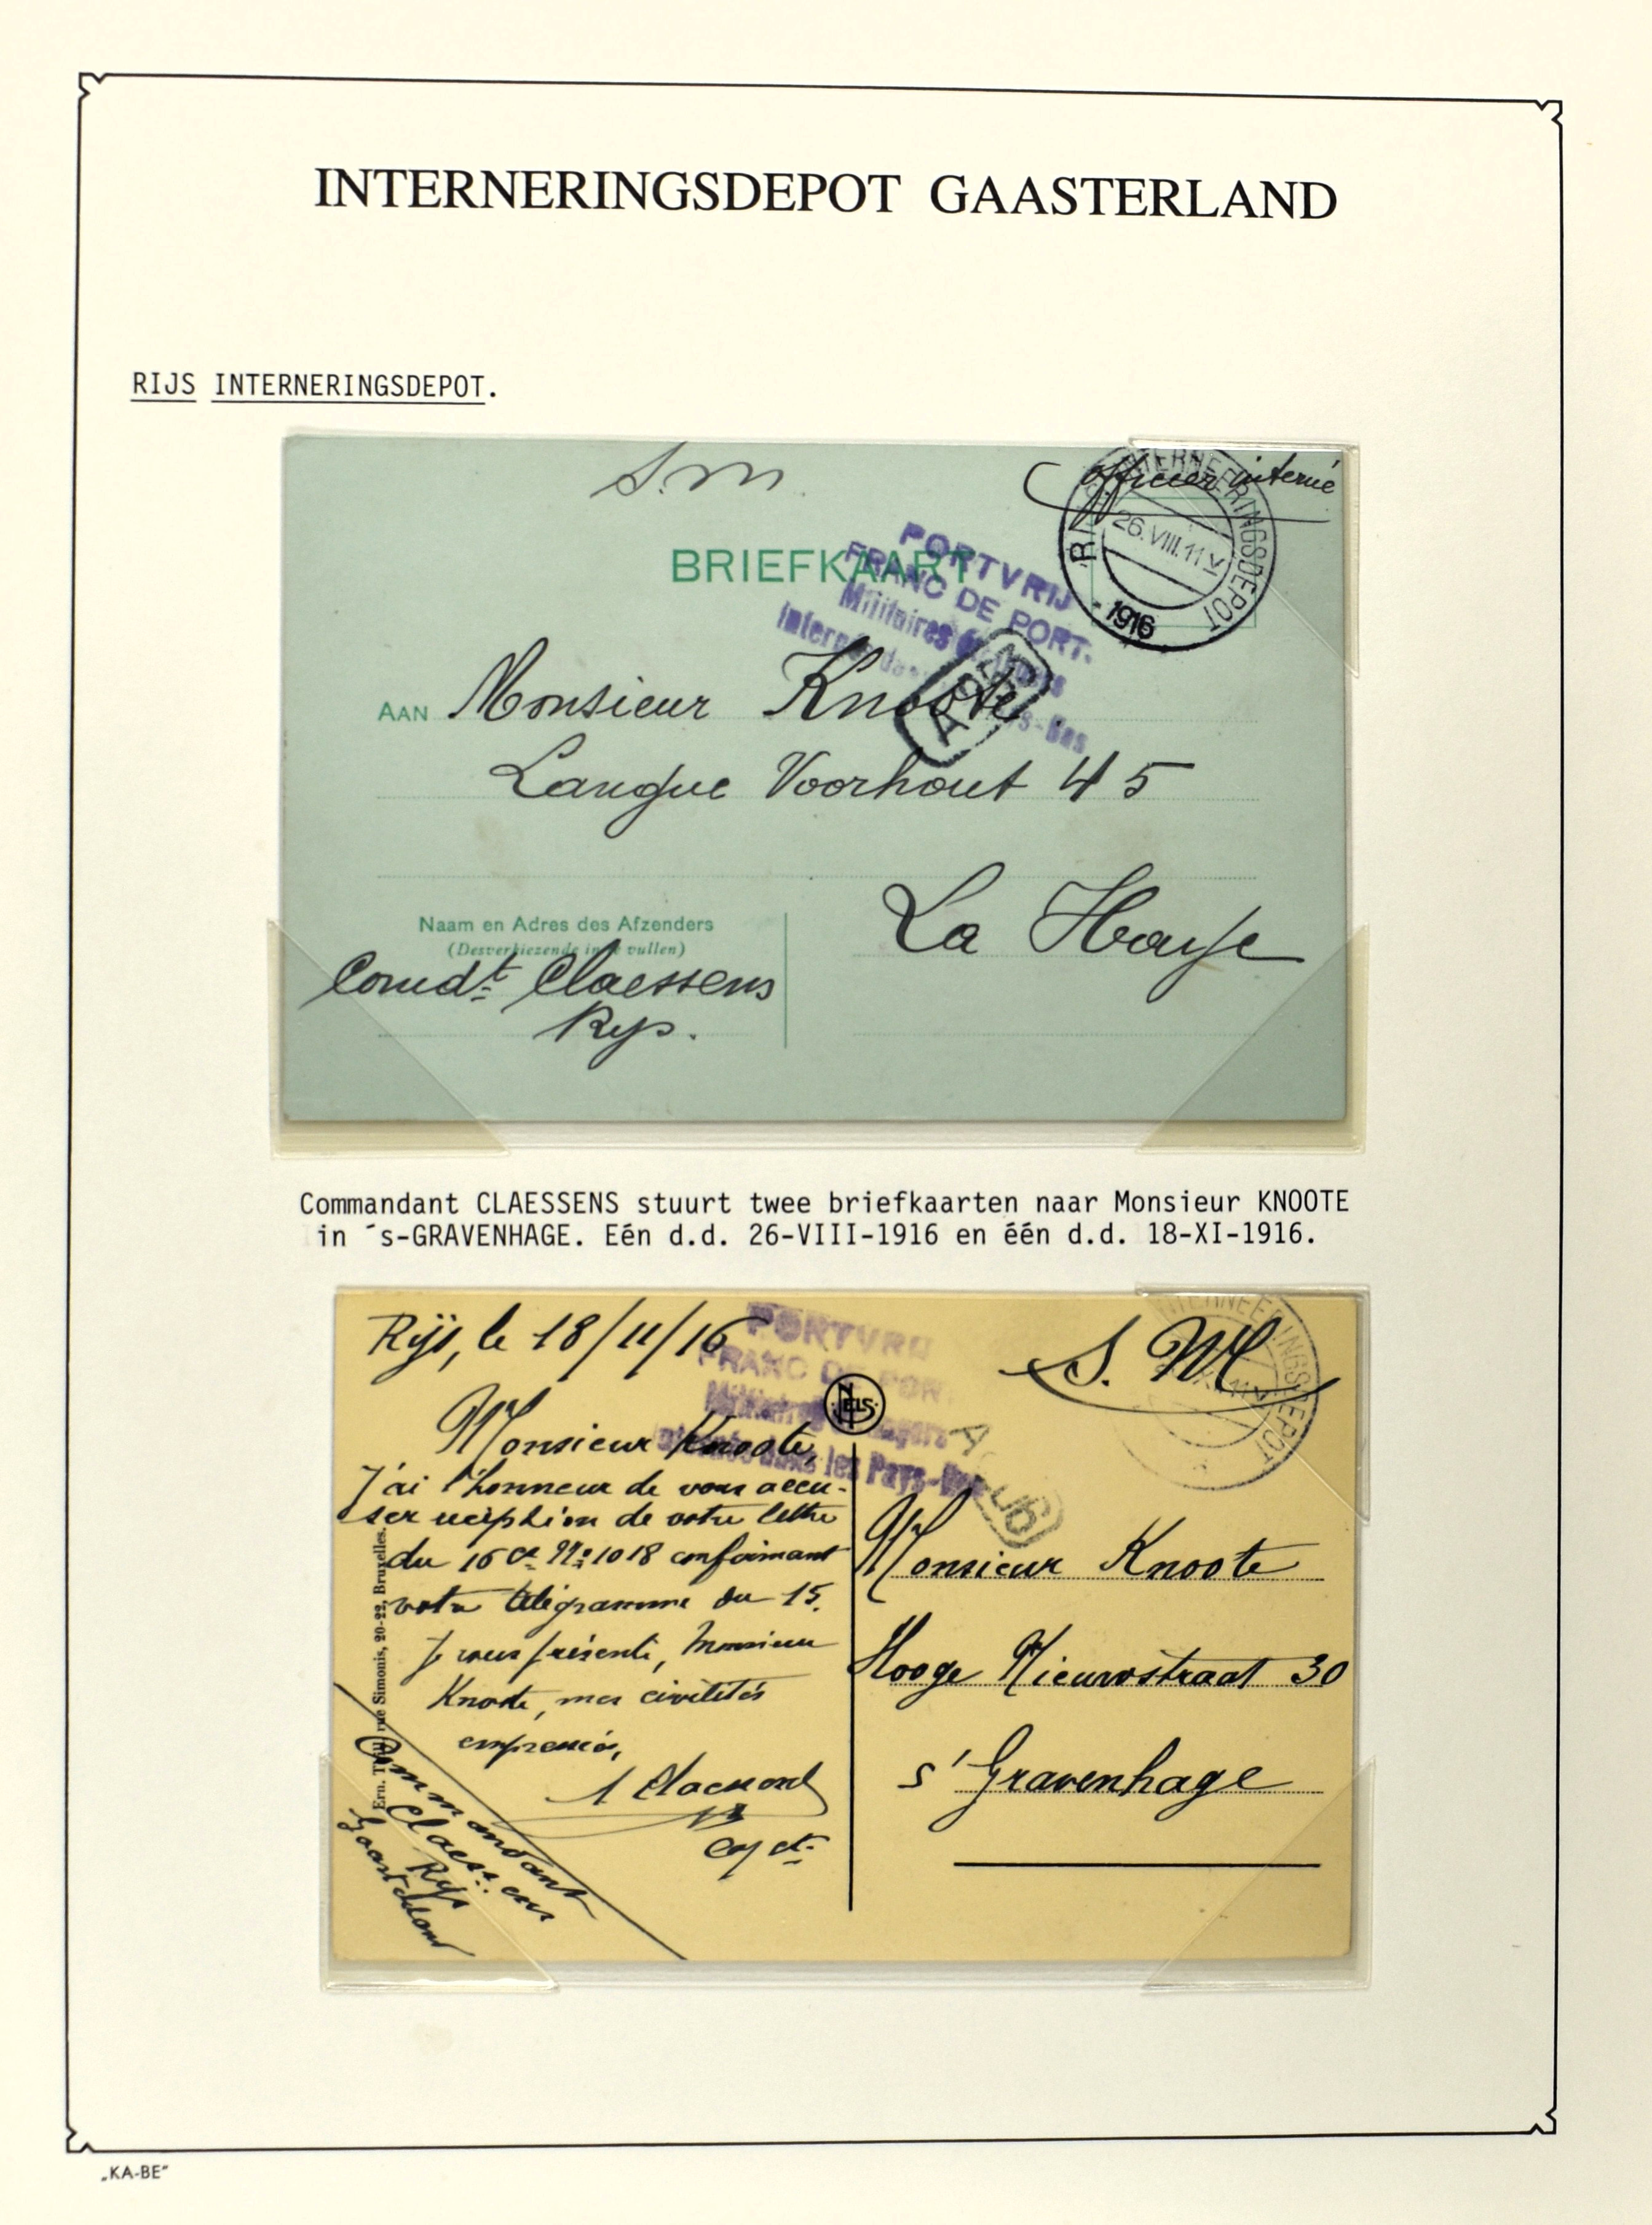 INTERNERINGSDEPOT GAASTERLAND
RIJS INTERNERINGSDEPOT.
S.M.
officier interné
INTERNEERINGSDEPOT
26.VIII.11 V
1916
BRIEFKAART
PORTVRIJ
FRANC DE PORT.
Militaires
Pays-Bas
AAN Monsieur Knoote.
Langue Voorhout 45
La Haye
Naam en Adres des Afzenders
(Desverkiezende in te vullen)
Comdt Claessens
Rys.
Commandant CLAESSENS stuurt twee briefkaarten naar Monsieur KNOOTE
in ´s-GRAVENHAGE. Eén d.d. 26-VIII-1916 en één d.d. 18-XI-1916.
Rijs, le 18/11/16
PORTVRIJ
FRANC DE PORT.
Militaires étrangers
internés dans les Pays-Bas
NELS
S. M
INTERNEERINGSDEPOT
Monsieur Knoote,
J'ai l'honneur de vous accu-
ser réception de votre lettre
du 16 ct No 1018 confirmant
votre télégramme du 15.
Je vous présente, Monsieur
Knoote, mes civilités
empressées,
Claessens
Commandant
Claessens
Rijs
Gaasterland
Ern. Thill, rue Simonis, 20-22, Bruxelles.
Monsieur Knoote
Hooge Nieuwstraat 30
s' Gravenhage
„KA-BE"